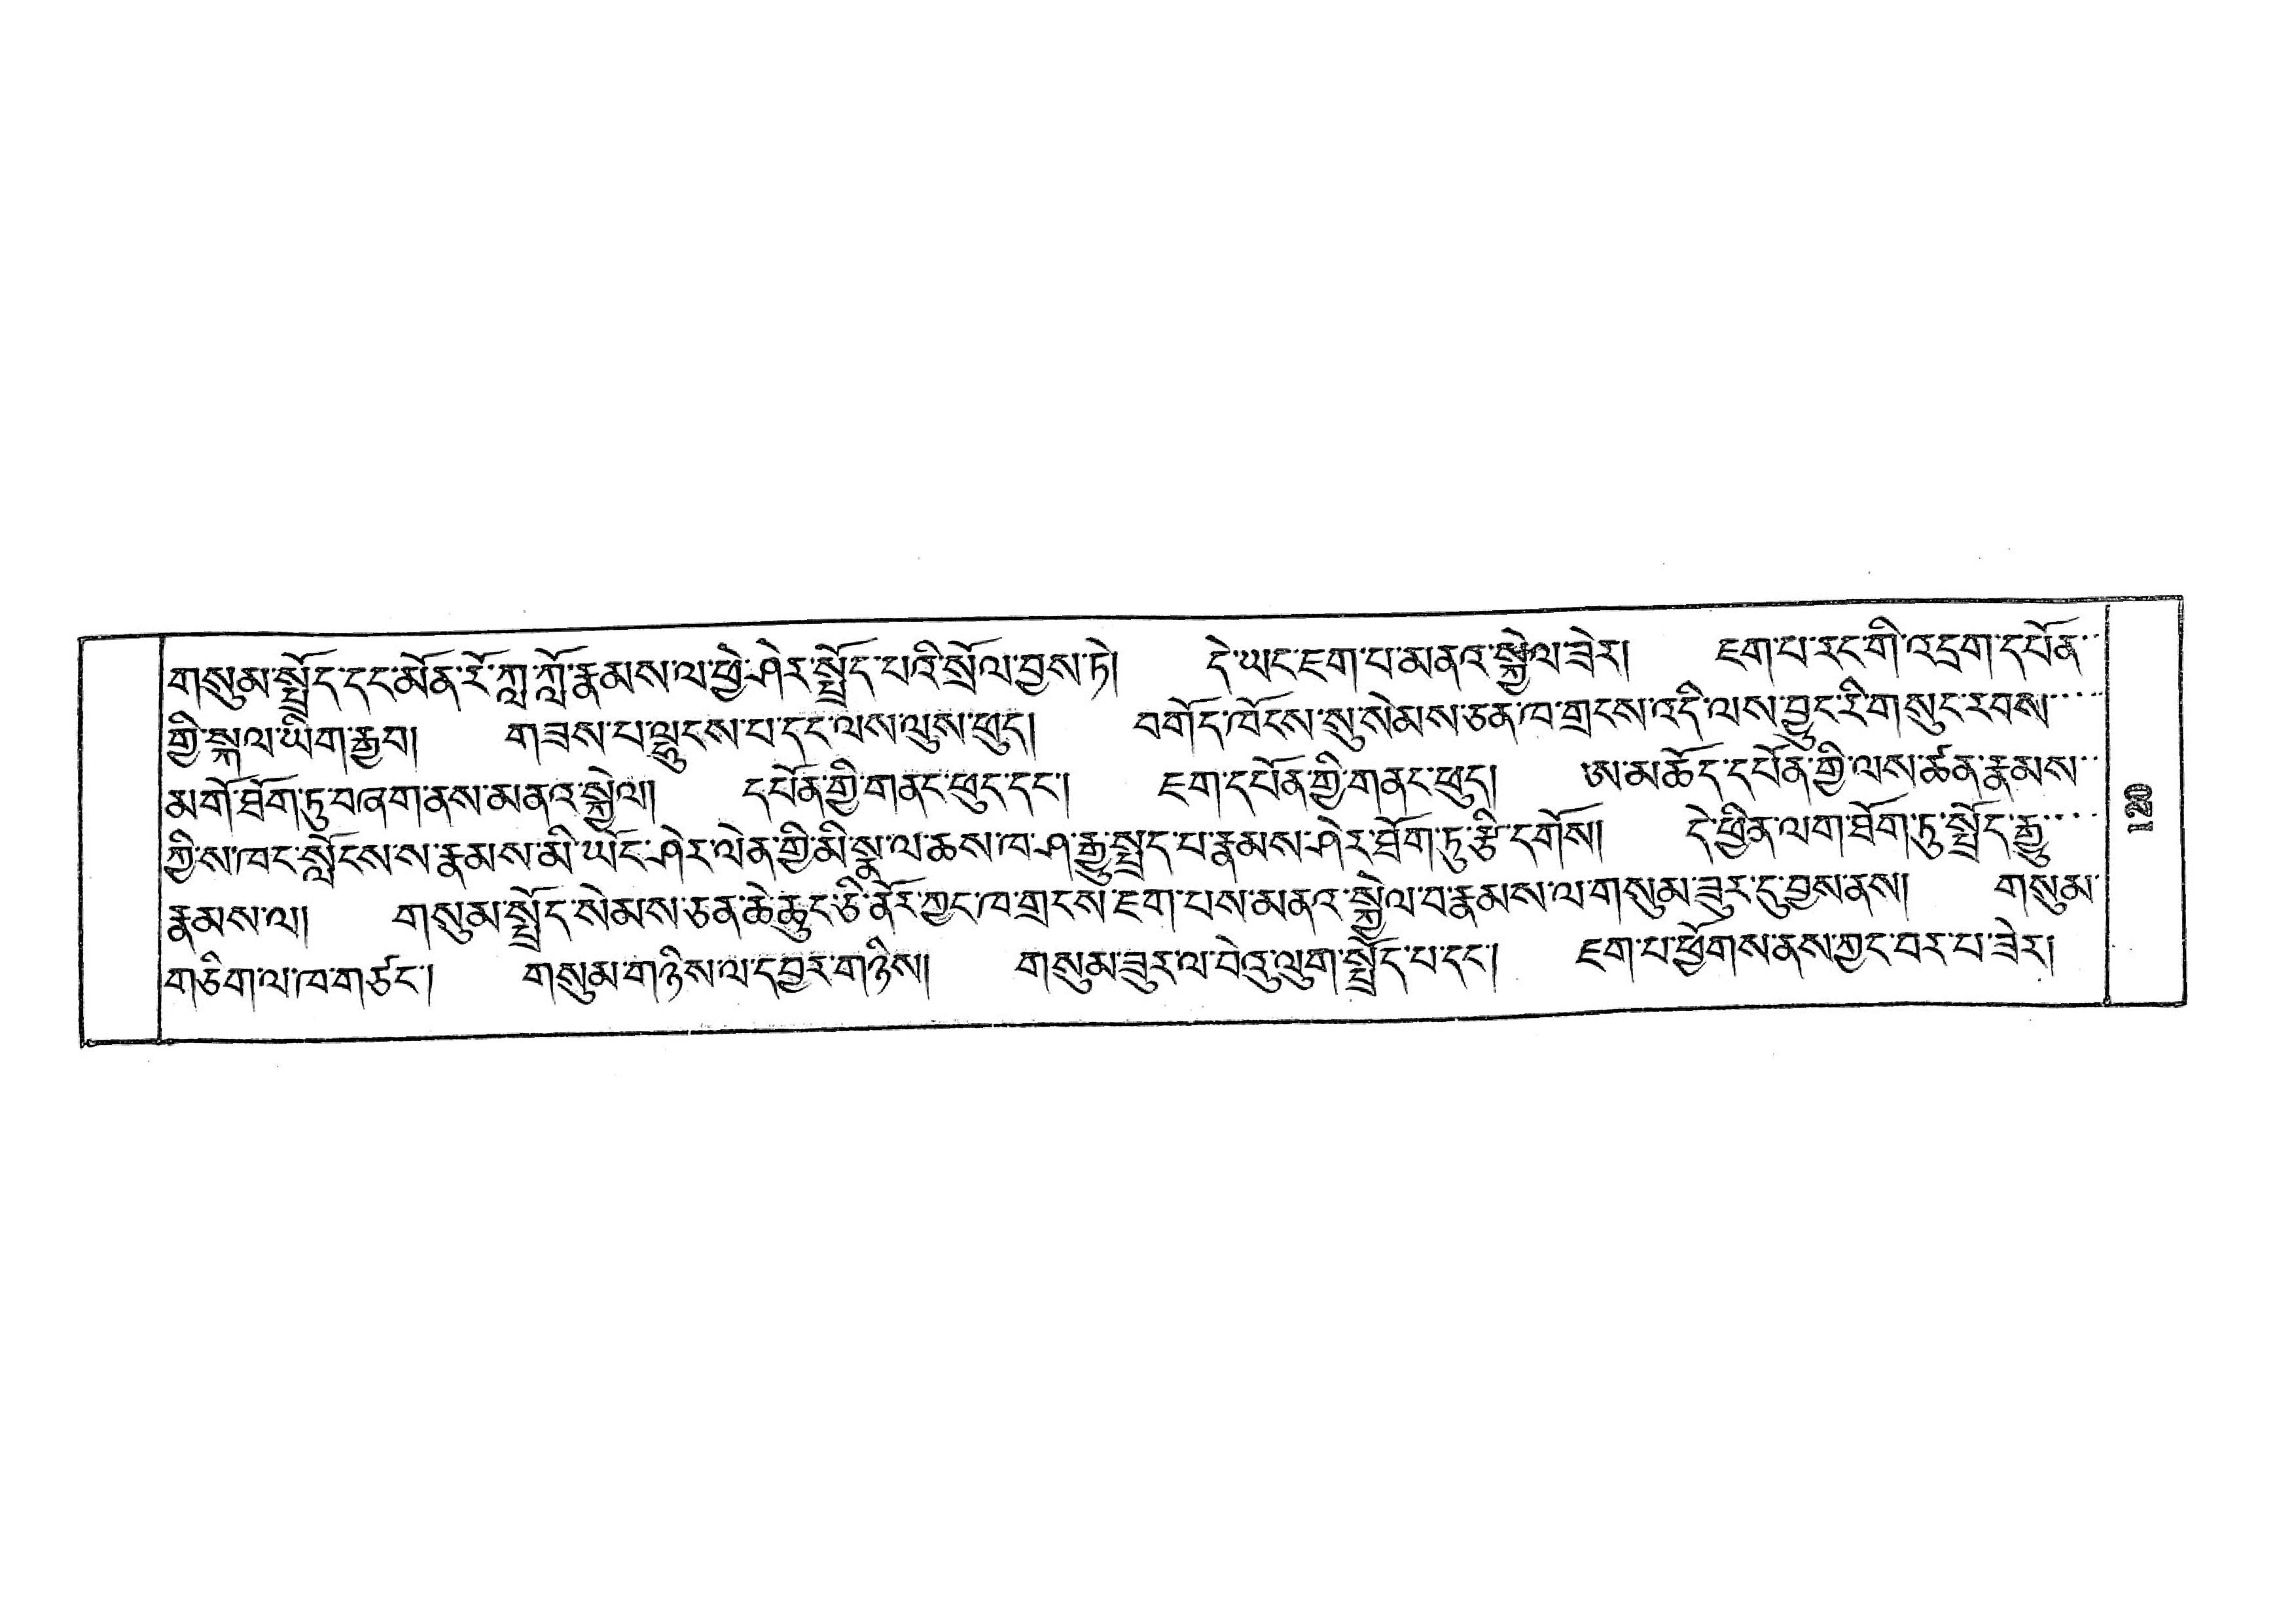 གསུམ་སྤྲོད་དང་མོན་རོ་ཀླ་ཀློ་རྣམས་ལ་ཕྱེ་ཤེར་སྤྲོད་པའི་སྲོལ་བྱས་ཏེ། དེ་ཡང་ཇག་པ་མནའ་སྐྱེལ་ཟེར། ཇག་པ་རང་གི་འདྲག་དཔོན་་
གྱི་སྐལ་ཡིག་རྒྱབ། གཟས་པ་ལྷུངས་པ་དང་ལས་ལུས་ཕུད། བགོད་ཁོངས་སུ་སེམས་ཅན་ཁ་གྲངས་འདི་ལས་བྱུང་རི་གསུང་རབས་་་་
མགོ་ཐོག་ཏུ་བཞག་ནས་མནའ་སྐྱེལ། དཔོན་གྱི་གནང་ཕུད་དང་། ཇག་དཔོན་གྱི་གནང་ཕུད། ཨ་མཆོད་དཔོན་གྱི་ལས་ཚན་རྣམས་་
ཀྱིས་ཁང་སློངས་ས་རྣམས་མི་ཡོང་ཤེར་ལེན་གྱི་མི་སྣ་ལ་ཆས་ཁ་ཤ་རྒྱུ་སྤྲད་པ་རྣམས་ཤེར་ཐོག་ཏུ་རྩི་དགོས། དེ་ཕྱིན་ལག་ཐོག་ཏུ་སྤྲོད་རྒྱུ་་་་
རྣམས་ལ། གསུམ་སྤྲོད་སེམས་ཅན་ཆེ་ཆུང་ཅི་ནོར་ཀྱང་ཁ་གྲངས་ཇག་པས་མནའ་སྐྱེལ་བ་རྣམས་ལ་གསུམ་ཟུར་དུ་བྱས་ནས། གསུམ་
གཅིག་ལ་ཁ་གཙང་། གསུམ་གཉིས་ལ་དབྱར་གཉིས། གསུམ་ཟུར་ལ་བེའུ་ལུག་སྤྲོད་པ་དང་། ཇག་པ་ཕྱོགས་ནས་ཀྱང་བར་པ་ཟེར།
120